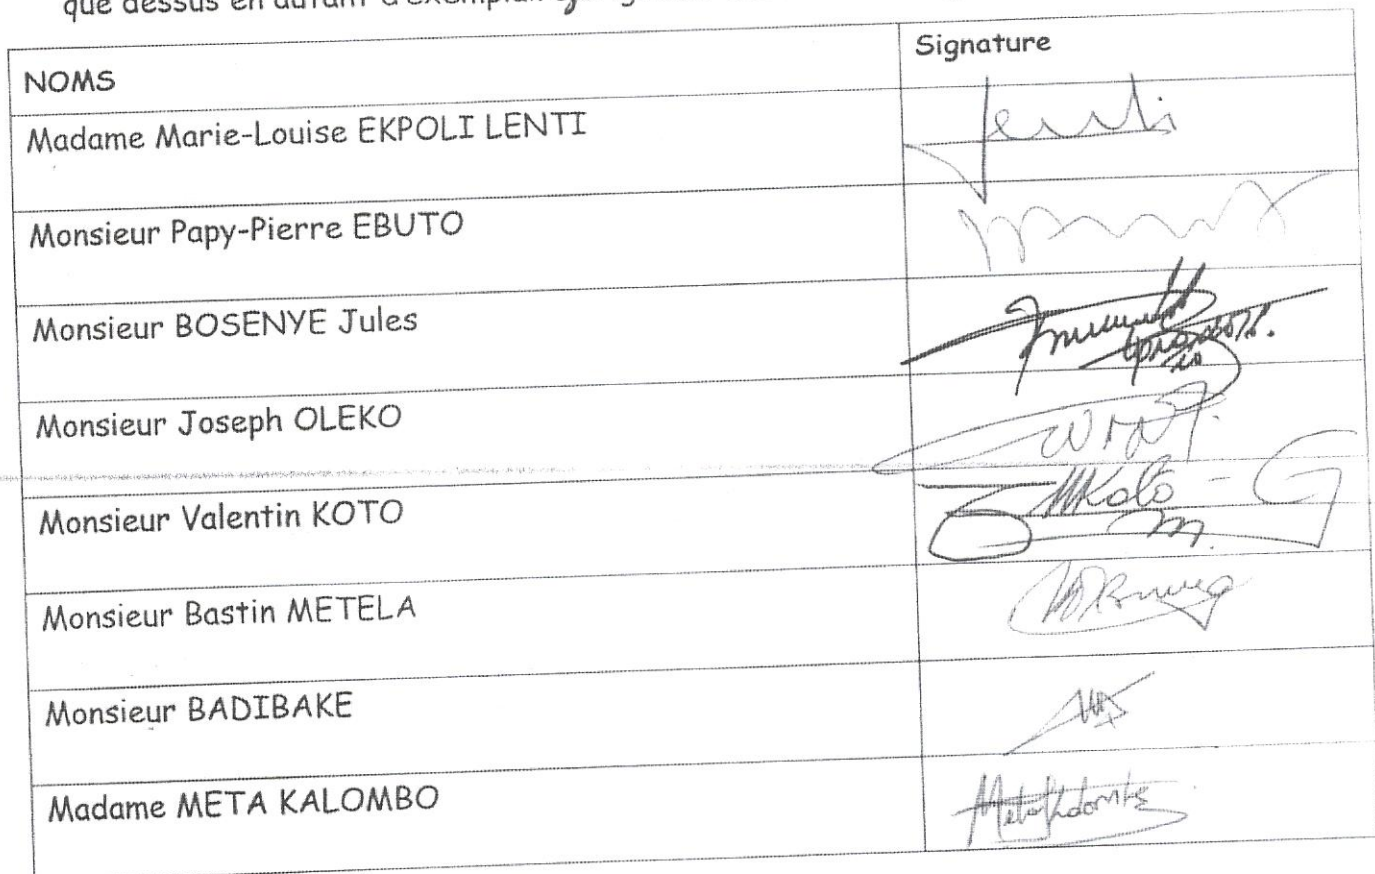 que dessus en autant d'exempl
NOMS
Signature
Madame Marie-Louise EKPOLI LENTI
Lenti
Monsieur Papy-Pierre EBUTO
Monsieur BOSENYE Jules
Monsieur Joseph OLEKO
Monsieur Valentin KOTO
Koto
Monsieur Bastin METELA
Monsieur BADIBAKE
Madame META KALOMBO